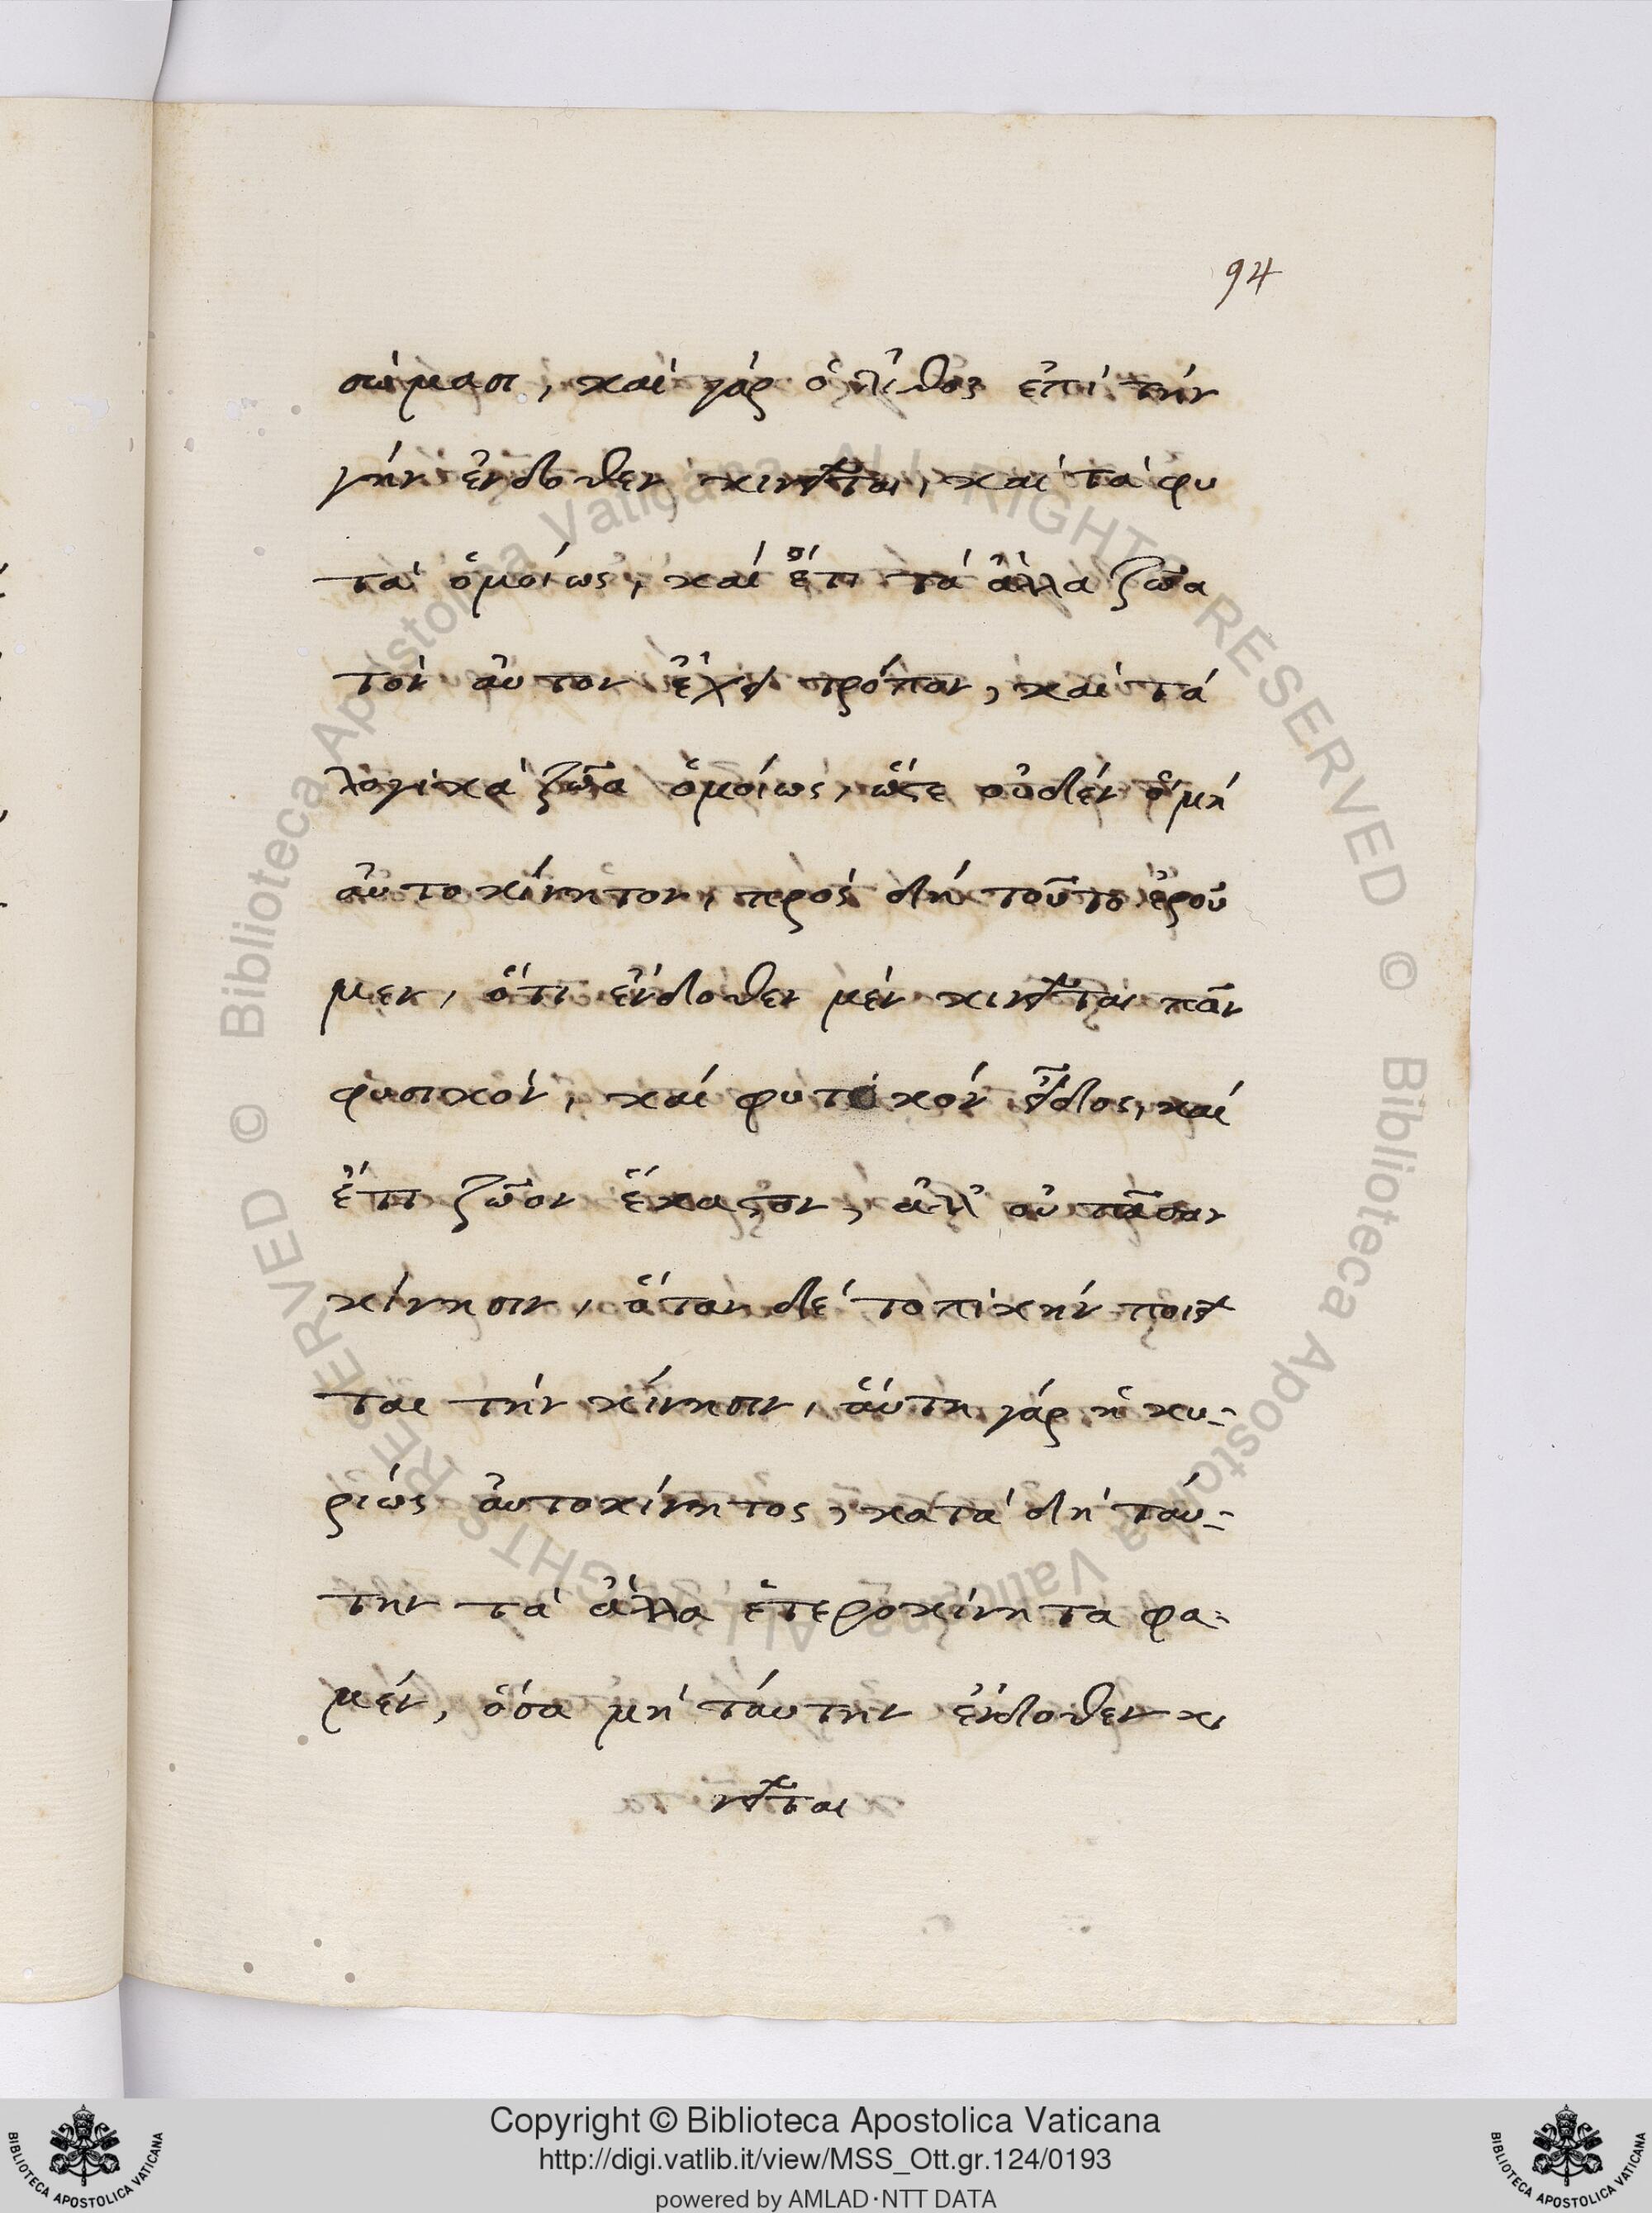 94
σώμασι, καί γάρ ὁ λίθος ἐπί τήν
γῆν ἔνδοθεν κινεῖται, καί τά φυ
τά ὁμοίως, καί ἔτι τά ἄλλα ζῶα
τόν αὐτον ἔχει τρόπον, καί τά
λογικά ζῶα ὁμοίως, ὥστε οὐδέν ὅ μή
αὐτοκίνητον, πρός δή τοῦτο ἐροῦ
μεν, ὅτι ἔνδοθεν μέν κινεῖται πᾶν
φυσικόν, καί φυτικόν εἶδος, καί
ἔτι ζῶον ἕκαστον, ἀλλ' οὐ πᾶσαν
κίνησιν, ὅταν δέ τοπικήν ποιεῖ
ται τήν κίνησιν, ἅυτη γάρ ἡ κυ-
ρίως ἀυτοκίνητος, κατά δή τάυ-
την τά ἄλλα ἑτεροκίνητα φα-
μέν, ὅσα μή τάυτην ἔνδοθεν κι
νεῖται
Copyright © Biblioteca Apostolica Vaticana
http://digi.vatlib.it/view/MSS_Ott.gr.124/0193
powered by AMLAD·NTT DATA
BIBLIOTECA APOSTOLICA VATICANA
BIBLIOTECA APOSTOLICA VATICANA
© Biblioteca Apostolica Vaticana ALL RIGHTS RESERVED © Biblioteca Apostolica Vaticana ALL RIGHTS RESERVED